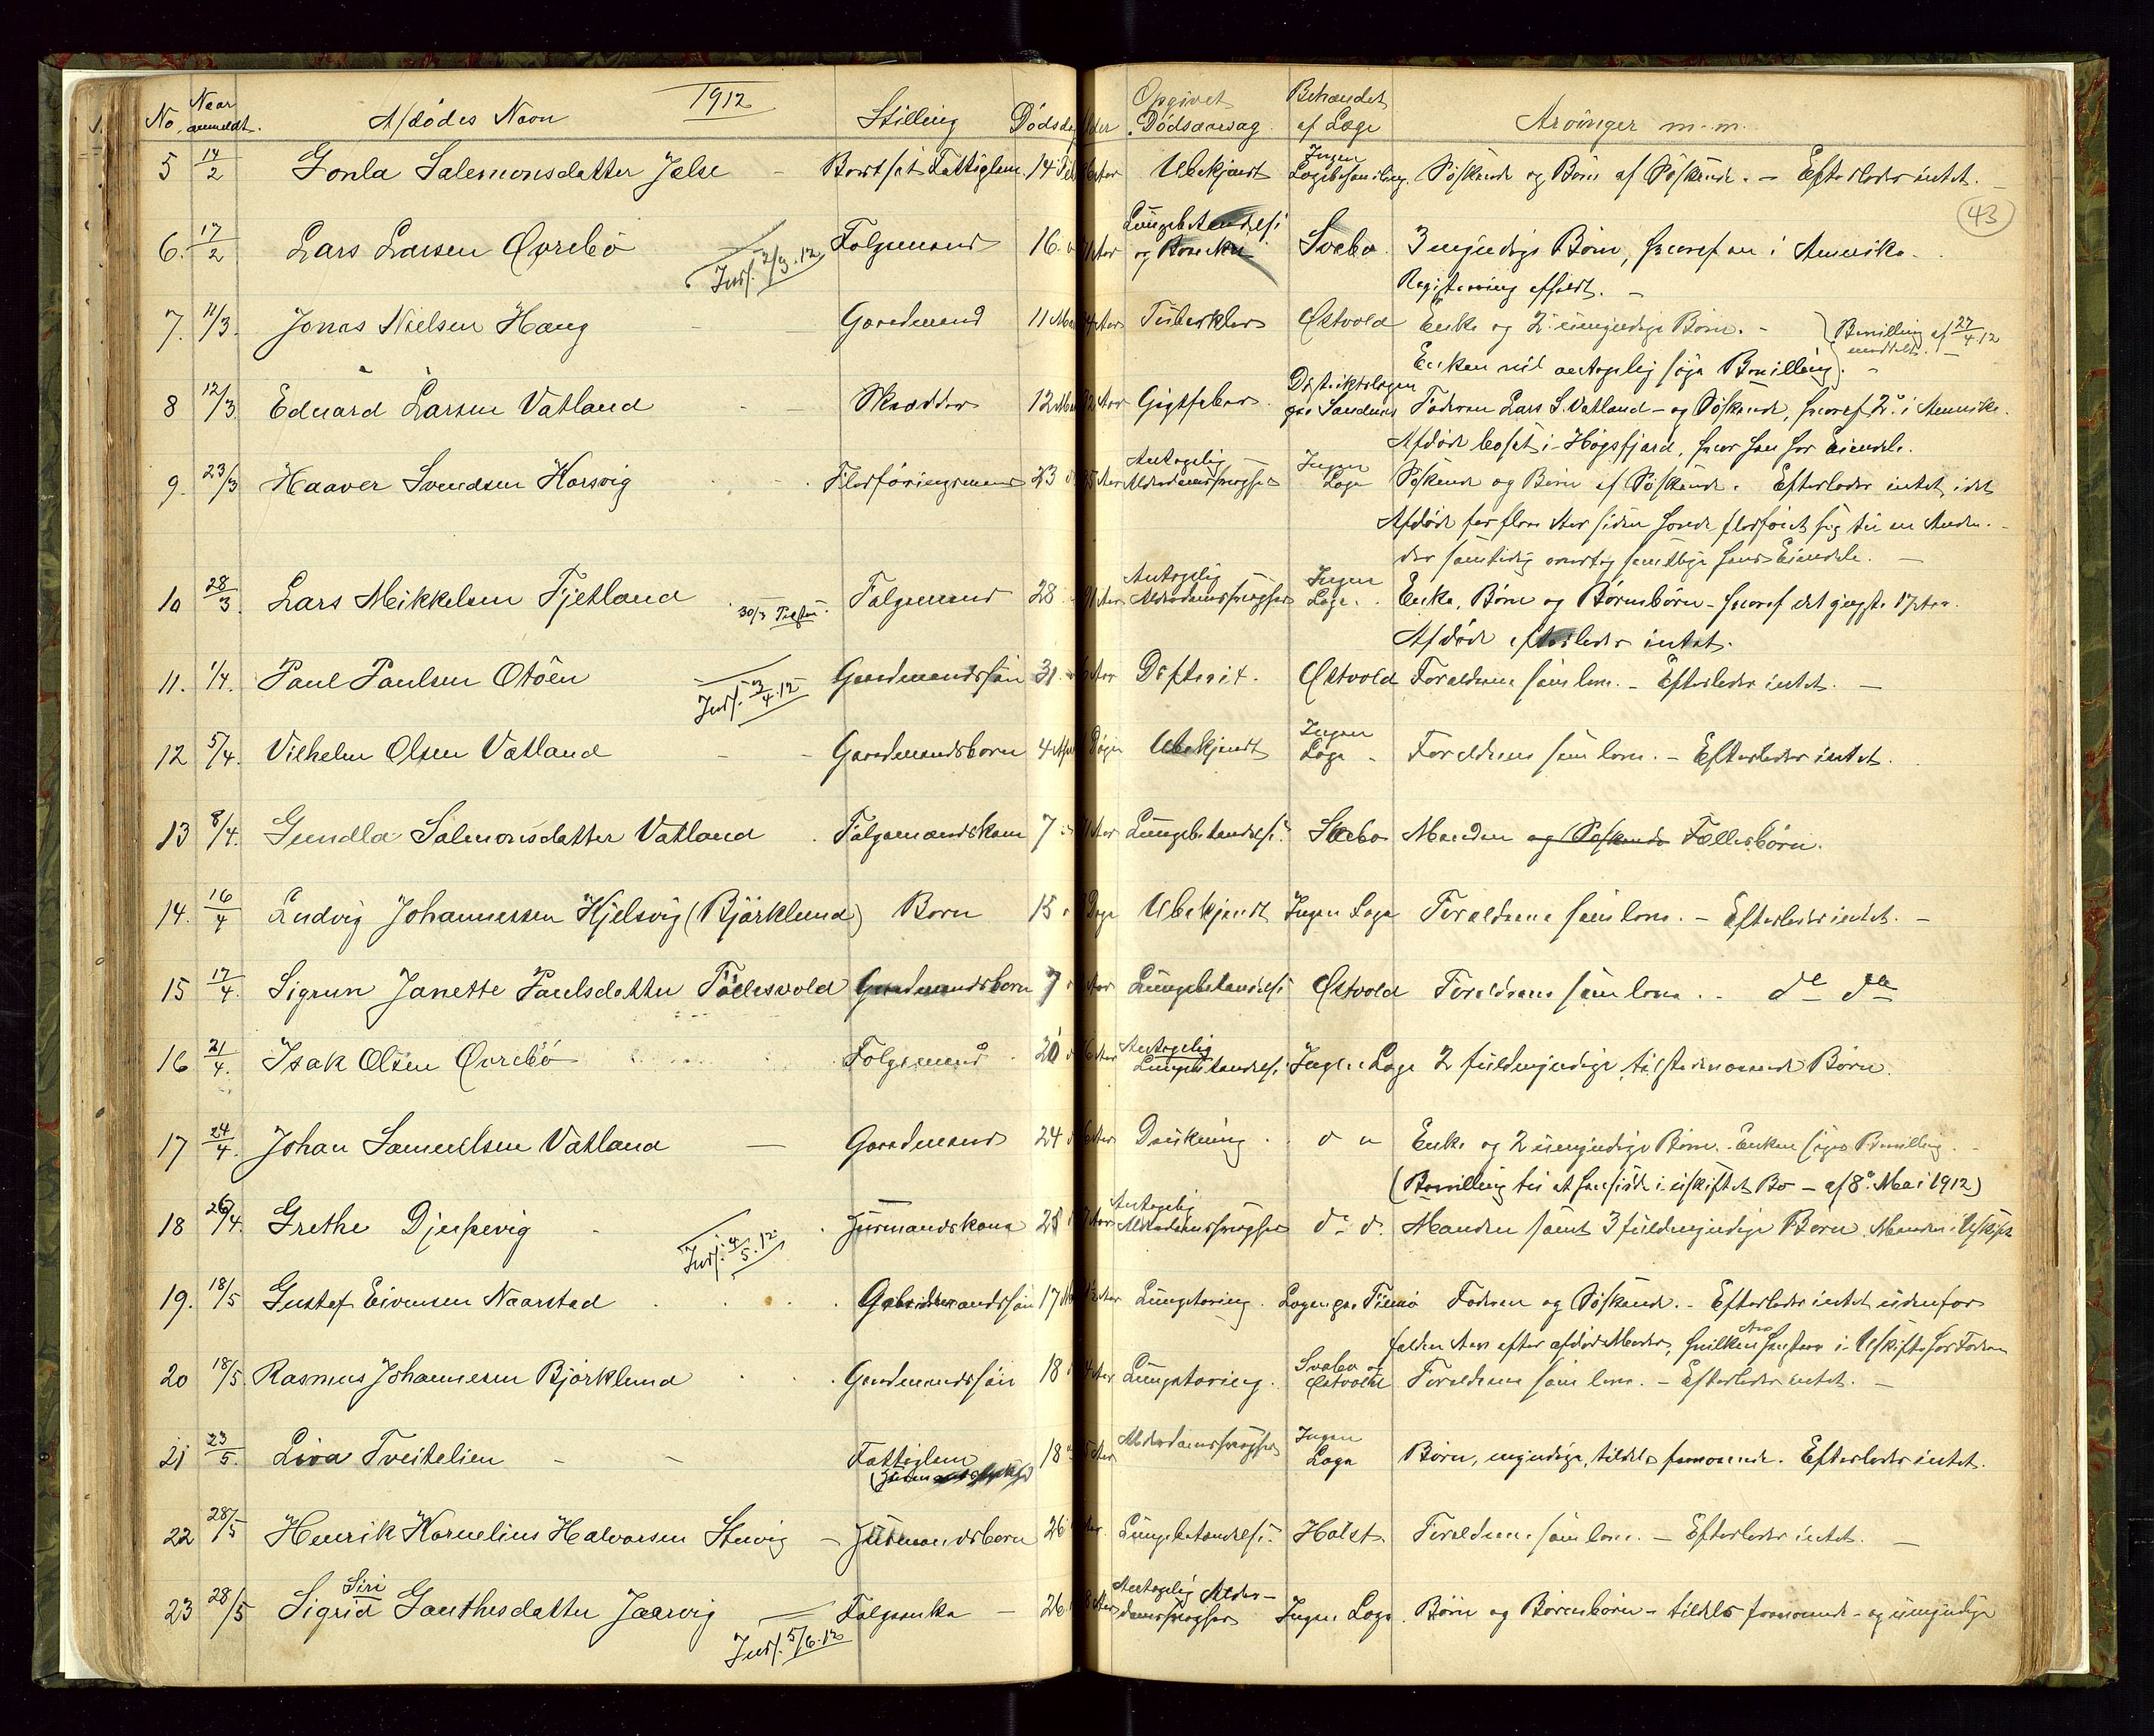 No. Naar anmeldt. Afdödes Navn 1912 Stilling Dødsdag Alder Opgivet Dødsaarsag Behandlet af Læge Arvinger m.m.
43
5 14/2 Gonla Salemonsdatter Jelse - Bortsat Fattiglem 14 Feb Aar Ubekjendt Ingen Lægebehandling. Söskende og Börn af Söskende. - Efterlader intet.
6. 17/2 Lars Larsen Øvrebö Indf. 2/3.12 Folgemand 16. Aar Lungebetændelse og Svebo. 3 myndige Börn, hvoraf en i Amerika.
Registrering afholdt. -
7. 11/3. Jonas Nielsen Haug - - Gaardmand 11 Mar Aar Tuberklos Østvold Enke og 2 umyndige Börn. -
Enken vil antagelig söge Bevilling. } Bevilling af 27/4.12 meddelt. -
8 12/3 Edvard Larsen Vatland - - Skrædder 12 Mar Aar Gigtfeber. Distriktslægen paa Sandnes Faderen Lars L. Vatland - og Söskende, hvoraf 2 i Amerika.
Afdöde bosat i Högsfjord, hvor han har Eiendele.
9. 23/3 Haaver Svendsen Horsvig - - Flodföringsmand 23 Aar Antagelig Alderdomssvaghed Ingen Læge Söskende og Börn af Söskende. Efterlader intet, idet
Afdöde for flere Aar siden havde flodföret sig til en Anden.
der samtidig overtog samtlige hans Eiendele. -
10 28/3. Lars Mikkelsen Fjetland 30/3 Folgemand 28 91 Aar Antagelig Alderdomssvaghed Ingen Læge. Enke, Börn og Börnebörn - hvoraf det yngste 17 Aar.
Afdöde efterlader intet.
11. 1/4. Paul Paulsen Otöen Indf. 2/4.12 Gaardmandssön 31. Aar Difterit. Østvold Forældrene som leve. - Efterlader intet. -
12 5/4. Vilhelm Olsen Vatland - - Gaardmandsbarn 4 Apr Dögn Ubekjendt Ingen Læge - Forældrene som leve. - Efterlader intet.
13 8/4. Gundla Salmonsdatter Vatland . Folgemandskone 7 Aar Lungebetændelse. Svebo Manden og Söskende Fællesbörn.
14. 16/4 Ludvig Johannessen Hjelsvig (Björklund) Barn 15 Dage Ubekjendt Ingen Læge Forældrene som leve. - Efterlader intet. -
15 17/4. Sigrun Janette Paulsdatter Gaardmandsbarn 7 Aar Lungebetændelse Østvold Forældrene som leve. - do do
16 21/4. Isak Olsen Øvrebö Folgemand 20 Aar Antagelig Lungebetændelse. Ingen Læge 2 fuldmyndige, tilstedeværende Börn.
17 24/4. Johan Samuelsen Vatland - Gaardmand 24 Aar Drukning. do Enke og 2 umyndige Börn. Enken söger Bevilling.
(Bevilling til at hensidde i uskiftet Bo - af 8de Mai 1912)
18 26/4. Grethe Djupevig - Indf. 4/5.12 Husmandskone 25 Aar Antagelig Alderdomssvaghed do do. Manden samt 3 fuldmyndige Börn. Manden i Uskifte
19. 18/5 Gustaf Eivensen Naarstad Gaardmandssön 17 Mai Aar Lungetæring. Lægen paa Faderen og Söskende. - Efterlader intet udenfor
falden Arv efter afdöde Moder, hvilken Arv henstaar i Uskifte hos Faderen
20 18/5. Rasmus Johannesen Björklund Gaardmandssön 18 Aar Lungetæring. Svebo og Østvold Forældrene som leve. - Efterlader intet. -
21 23/5. Liva Tveitelien - - Fattiglem 18 Aar Alderdomssvaghed Ingen Læge Börn, myndige, tildels fraværende. Efterlader intet.
22 28/5 Henrik Kornelius Halvorsen - Husmandsbarn 26 Aar. Lungebetændelse. Holst Forældrene som leve. - Efterlader intet. -
23 28/5 Sigrid Siri Gauthesdatter Jaarvig Indf. 5/6.12 Folgeenke - 26 Aar Antagelig Alderdomssvaghed Ingen Læge. Börn og Börnebörn - tildels fraværende - og umyndige